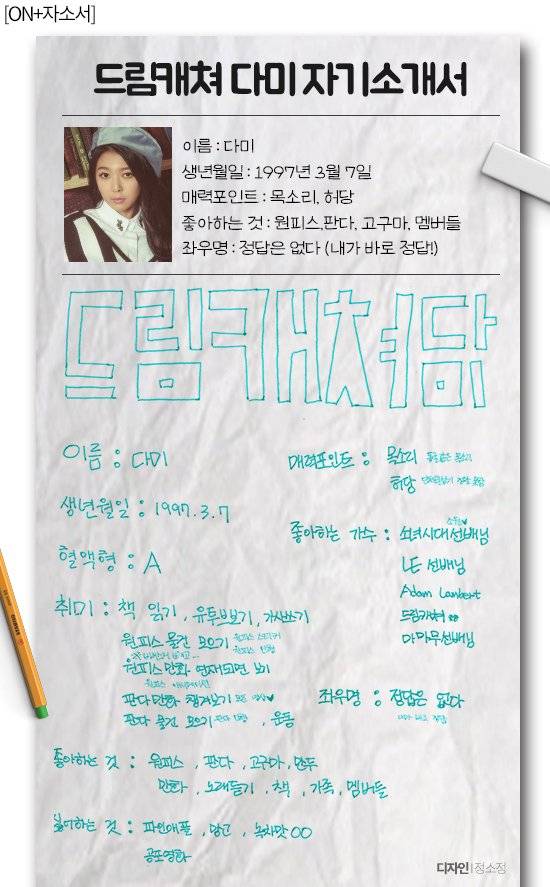 [ON+자소서]
드림캐쳐 다미 자기소개서
이름 : 다미
생년월일 : 1997년 3월 7일
매력포인트 : 목소리, 허당
좋아하는 것 : 원피스,판다, 고구마, 멤버들
좌우명 : 정답은 없다 (내가 바로 정답!)
드림캐쳐 담
이름 : 다미
생년월일 : 1997.3.7
혈액형 : A
취미 : 책 읽기, 유투브보기, 가사쓰기
원피스 물건 모으기 원피스 스티커
원피스 만화 연재되면 보기
판다 만화 챙겨보기
판다 물건 모으기 판다 인형, 운동
좋아하는 것 : 원피스, 판다, 고구마, 만두
만화, 노래듣기, 책, 가족, 멤버들
싫어하는 것 : 파인애플, 당근, 녹차맛OO
공포영화
매력포인트 : 목소리
허당
좋아하는 가수 : 소녀시대선배님
LE 선배님
Adam Lambert
드림캐쳐
마마무선배님
좌우명 : 정답은 없다
내가 바로 정답
디자인 | 정소정